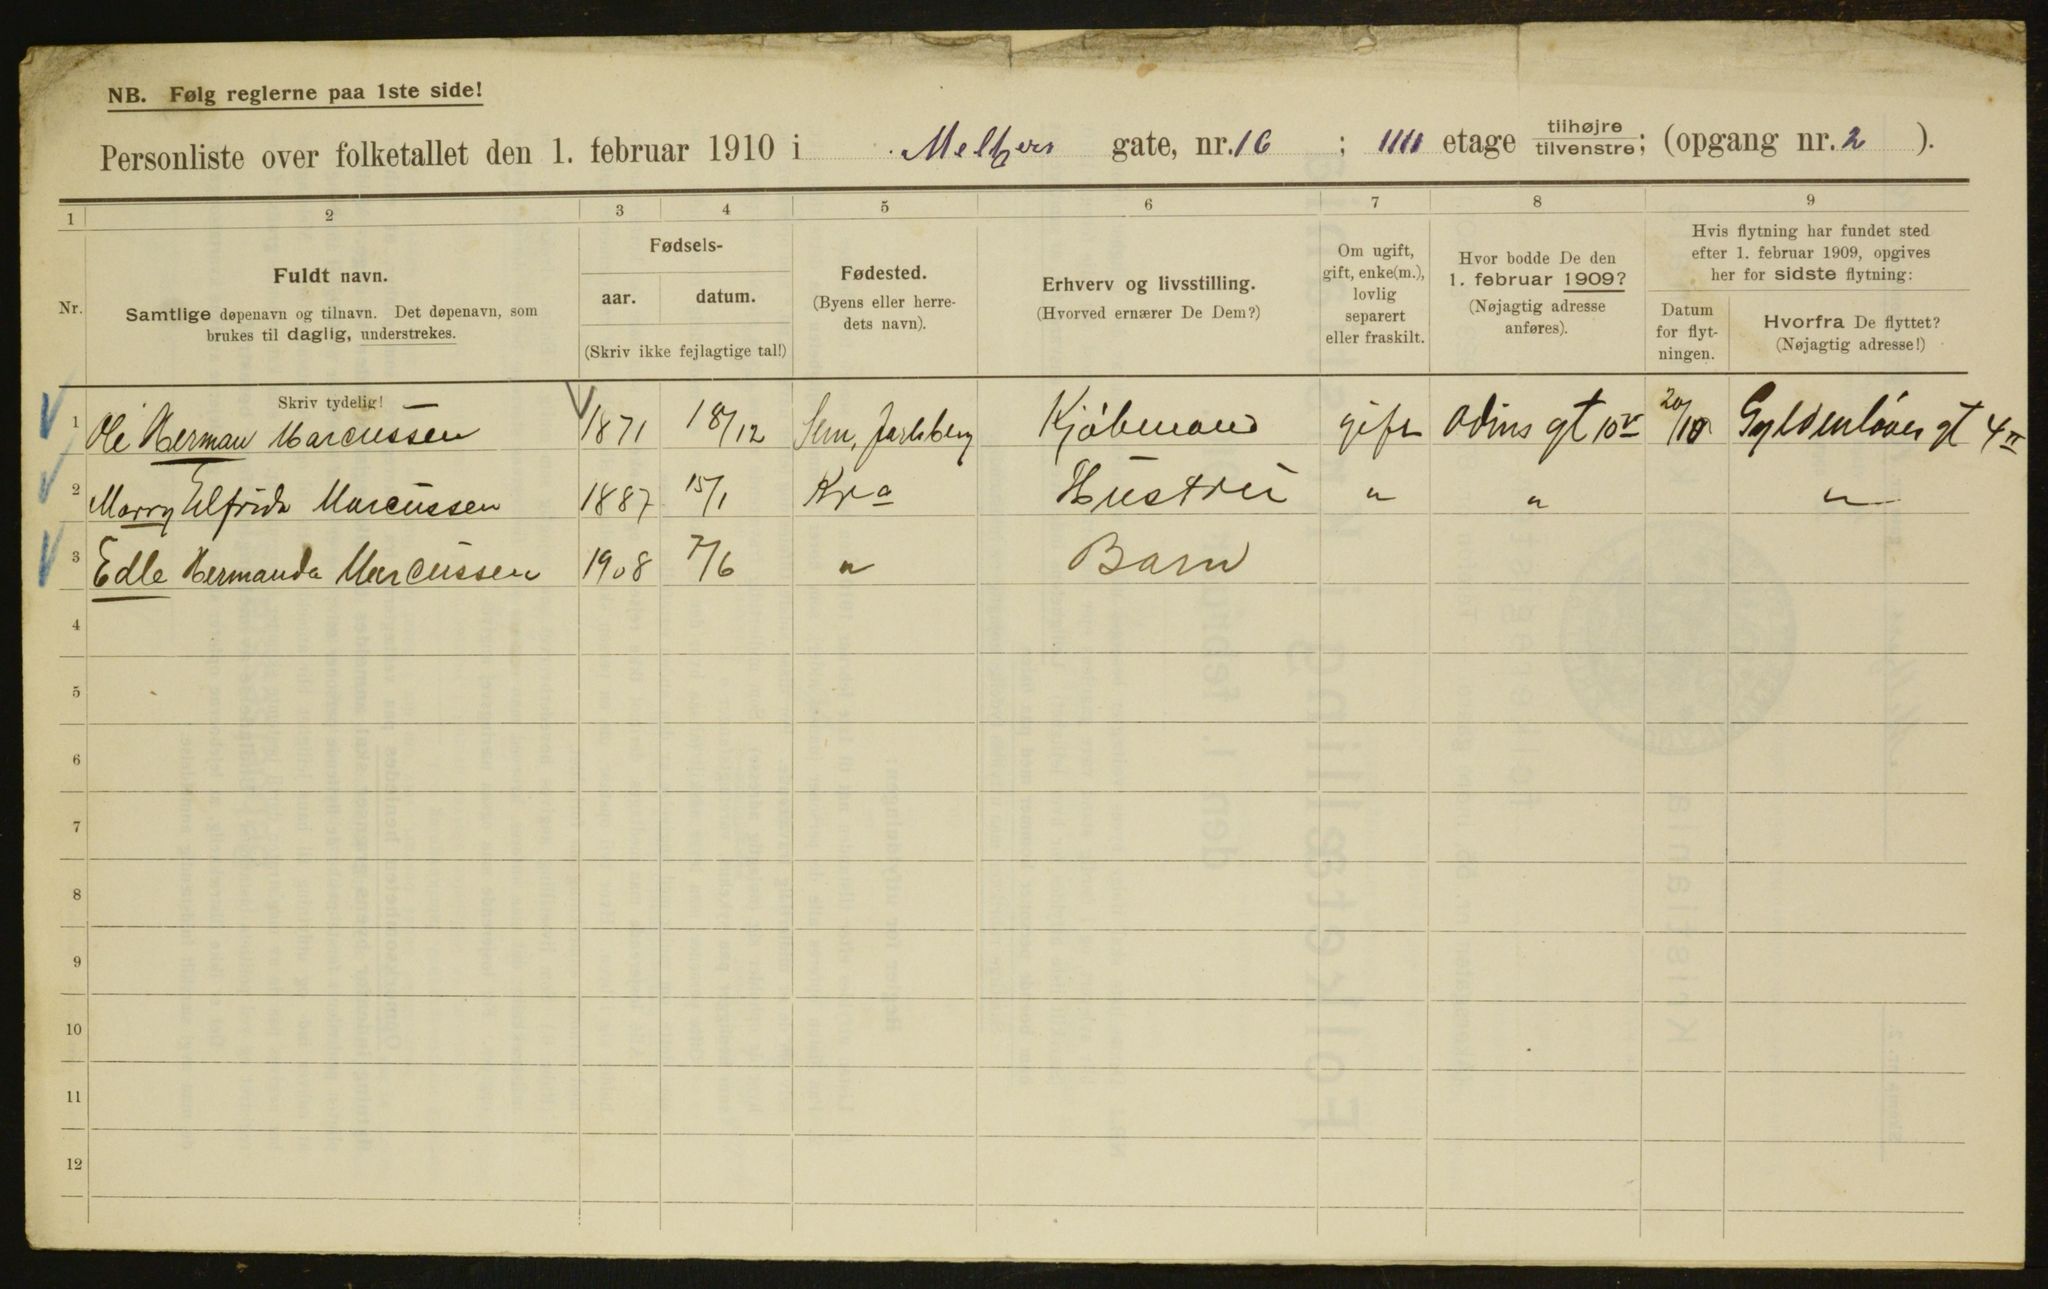 NB. Følg reglerne paa 1ste side!
Personliste over folketallet den 1. februar 1910 i Meltzers gate, nr. 16 ; IIII etage tilhøjre tilvenstre; (opgang nr. 2 ).
1 2 3 4 5 6 7 8 9
Nr.
Fuldt navn.
Samtlige døpenavn og tilnavn. Det døpenavn, som
brukes til daglig, understrekes.
Fødsels-
aar. datum.
(Skriv ikke fejlagtige tal!)
Fødested.
(Byens eller herre-
dets navn).
Erhverv og livsstilling.
(Hvorved ernærer De Dem?)
Om ugift,
gift, enke(m.),
lovlig
separert
eller fraskilt.
Hvor bodde De den
1. februar 1909?
(Nøjagtig adresse
anføres).
Hvis flytning har fundet sted
efter 1. februar 1909, opgives
her for sidste flytning:
Datum
for flyt-
ningen.
Hvorfra De flyttet?
(Nøjagtig adresse!)
Skriv tydelig!
1 Ole Herman Marcussen 1871 18/12 Sem, Jarlsberg Kjøbmand gift Odins gt 10 V 20/10 Gyldenløves gt 4 II
2 Marry Elfrida Marcussen 1887 15/1 Kra Hustru " " "
3 Edle Hermanda Marcussen 1908 7/6 " Barn
4
5
6
7
8
9
10
11
12